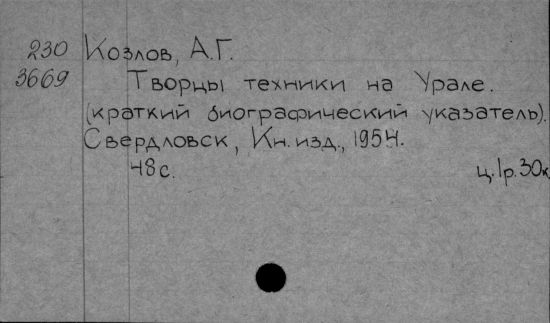 230 Козлов, А.Г.
3669 Творцы техники на Урале.
(краткий биографический указатель).
Свердловск, Кн. изд., 1954.
48с. ц. 1р. 30к